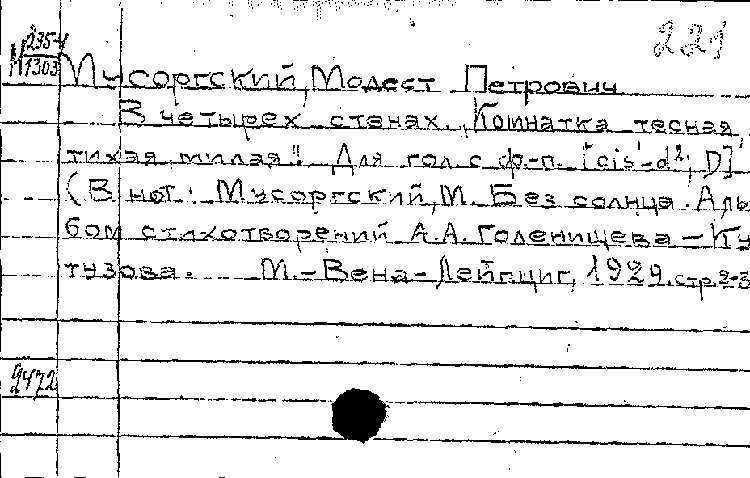 221
М 235-4
1303
Мусоргский, Модест Петрович
В четырех стенах. „Комнатка тесная,
тихая, милая". Для гол. с ф-п. [cis'-d²; D]
(В нот.: Мусоргский, М. Без солнца. Аль-
бом стихотворений А.А. Голенищева-Ку-
тузова. М.-Вена-Лейпциг, 1929. стр. 2-3
2472